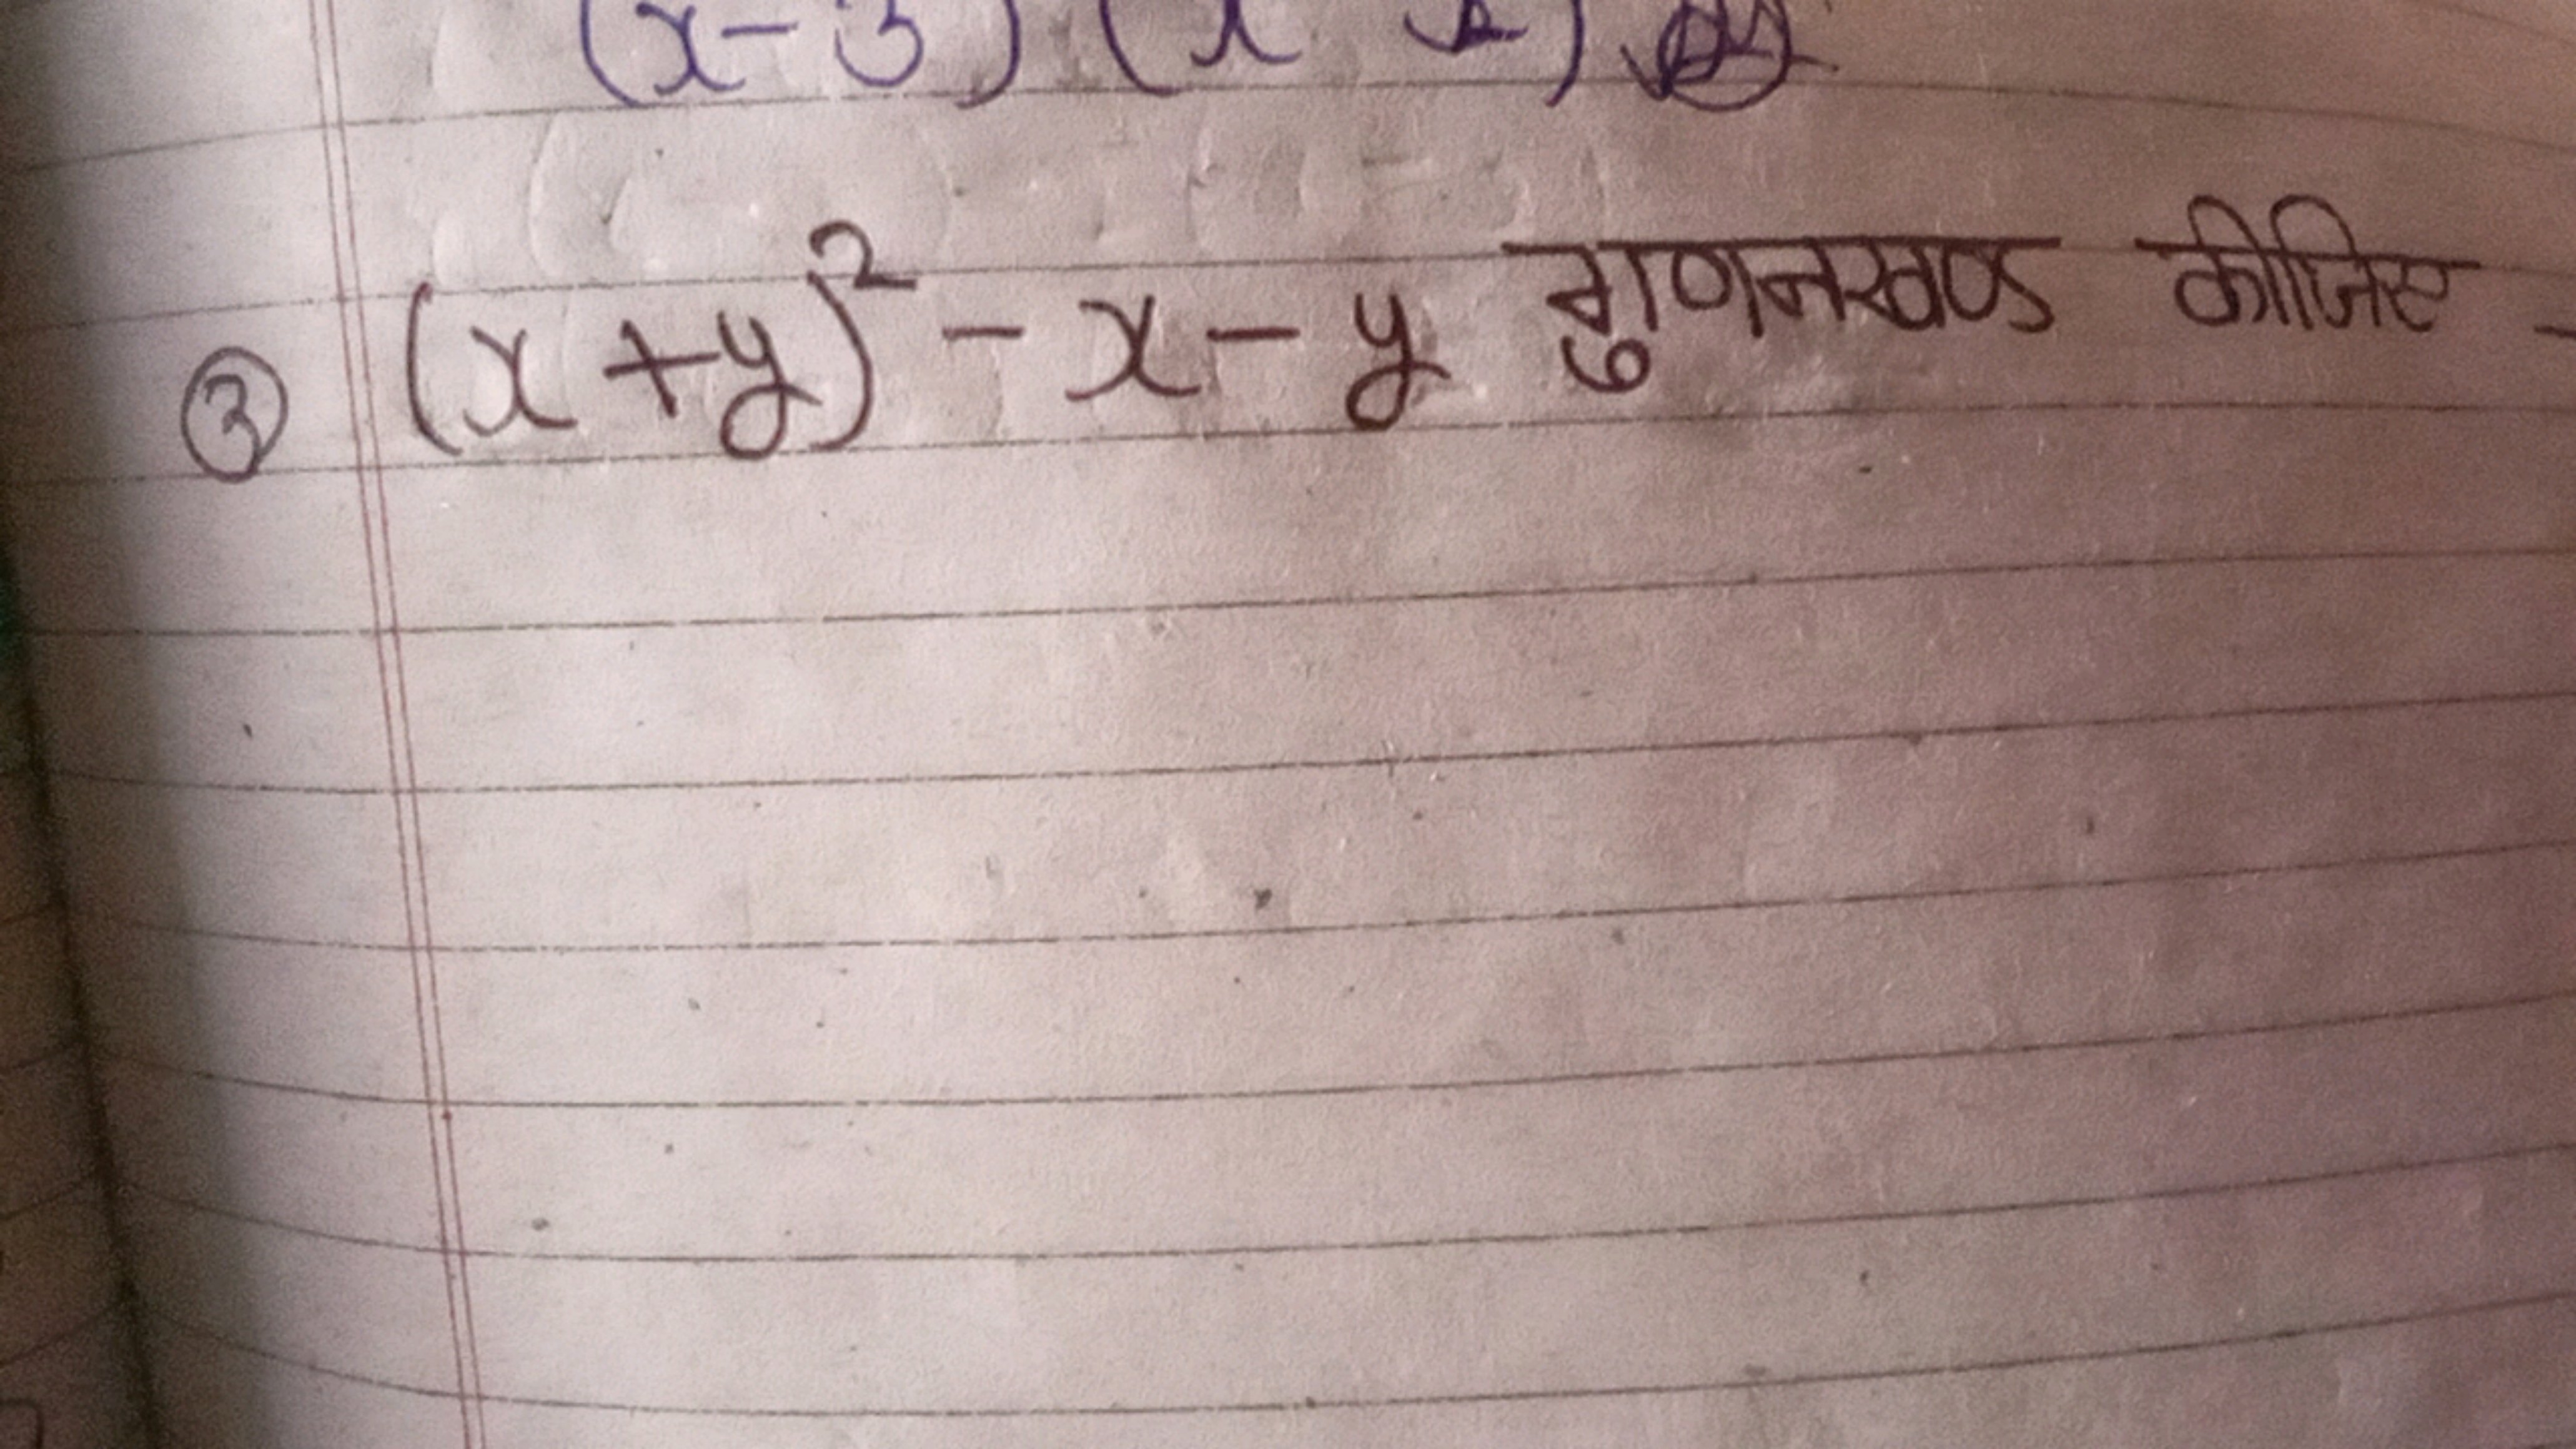 (x-3) (x
③ (x+y)² - x - y गुणनखण्ड कीजिए -